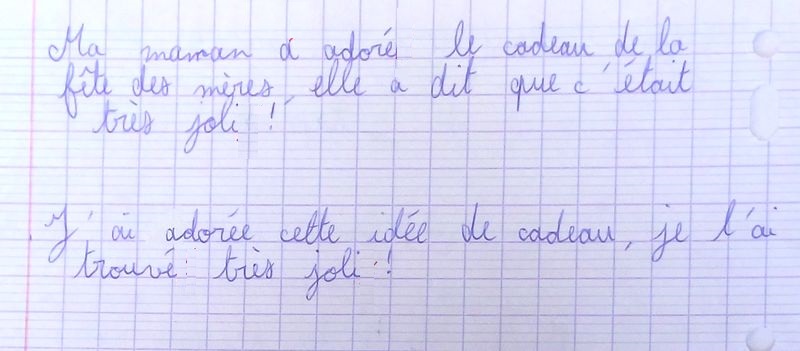 Ma maman a adoré le cadeau de la
fête des mères, elle a dit que c'était
très joli !
J'ai adorée cette idée de cadeau, je l'ai
trouvé très joli !